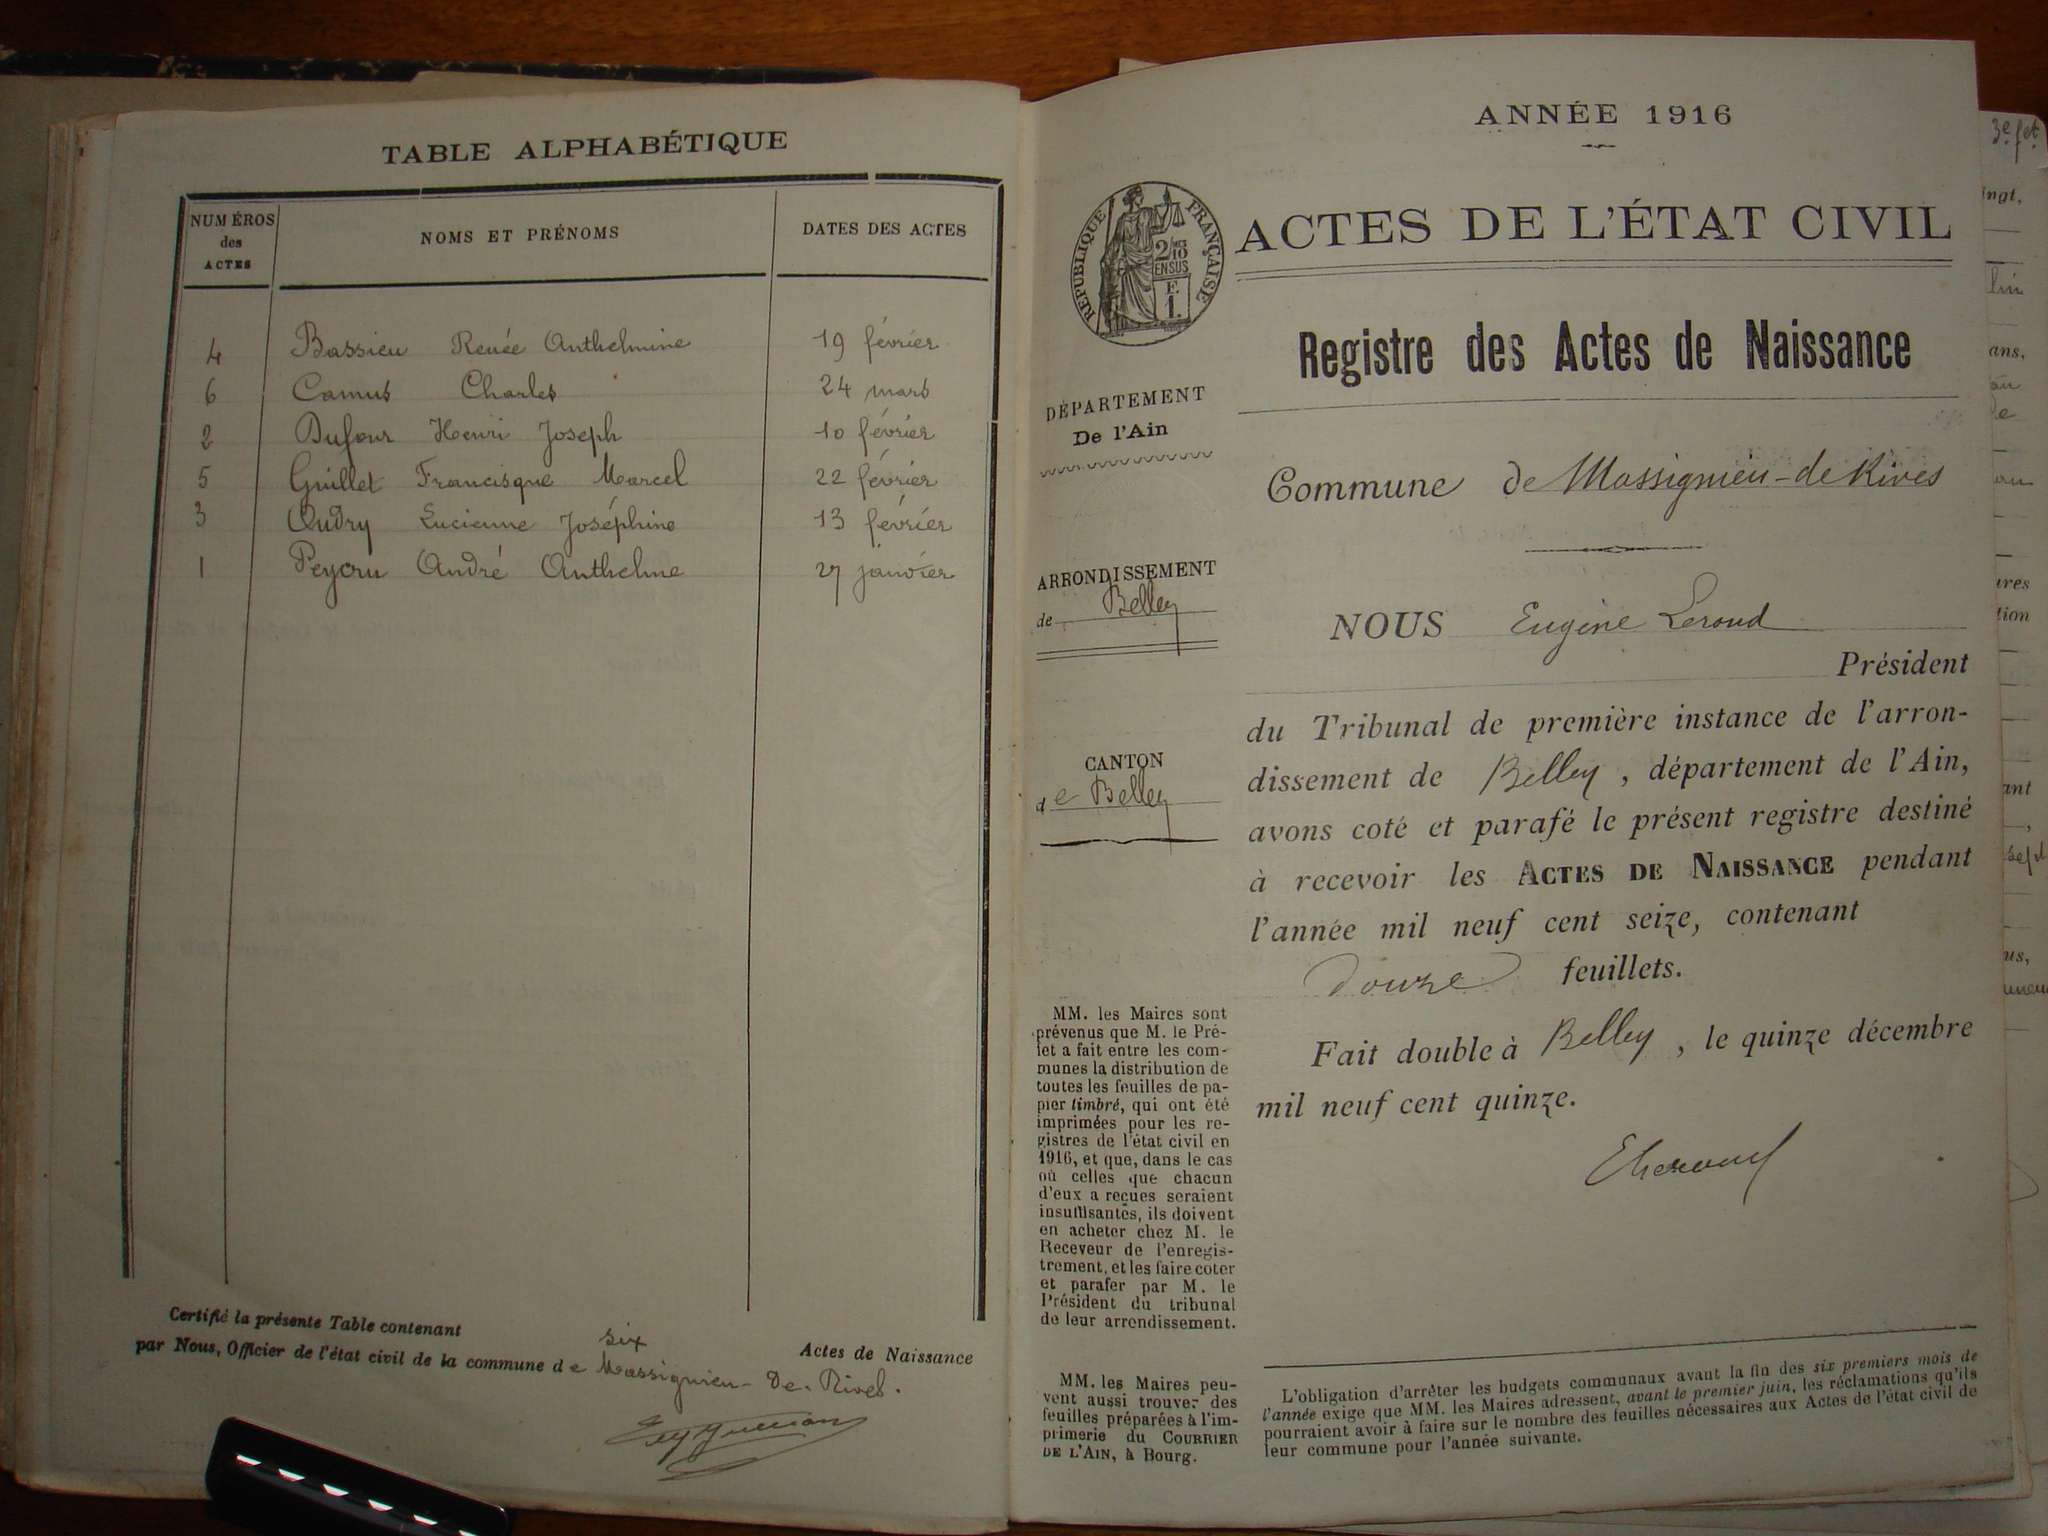 TABLE ALPHABÉTIQUE
NUMÉROS des ACTES
NOMS ET PRÉNOMS
DATES DES ACTES
4 Bassieu Renée Anthelmine 19 février
6 Camus Charles 24 mars
2 Dufour Henri Joseph 10 février
5 Guillet Francisque Marcel 22 février
3 Oudry Lucienne Joséphine 13 février
1 Peycru André Anthelme 27 janvier
Certifié la présente Table contenant six Actes de Naissance
par Nous, Officier de l'état civil de la commune de Massignieu-De-Rives.
ANNÉE 1916
RÉPUBLIQUE FRANÇAISE
2/10 EN SUS
E. 1.
ACTES DE L'ÉTAT CIVIL
Registre des Actes de Naissance
DÉPARTEMENT
De l'Ain
ARRONDISSEMENT
de Belley
CANTON
de Belley
MM. les Maires sont
prévenus que M. le Pré-
fet a fait entre les com-
munes la distribution de
toutes les feuilles de pa-
pier timbré, qui ont été
imprimées pour les re-
gistres de l'état civil en
1916, et que, dans le cas
où celles que chacun
d'eux a reçues seraient
insuffisantes, ils doivent
en acheter chez M. le
Receveur de l'enregis-
trement, et les faire coter
et parafer par M. le
Président du tribunal
de leur arrondissement.
MM. les Maires peu-
vent aussi trouver des
feuilles préparées à l'im-
primerie du COURRIER
DE L'AIN, à Bourg.
Commune de Massignieu-de Rives
NOUS Eugène Leroud
Président
du Tribunal de première instance de l'arron-
dissement de Belley, département de l'Ain,
avons coté et parafé le présent registre destiné
à recevoir les ACTES DE NAISSANCE pendant
l'année mil neuf cent seize, contenant
douze feuillets.
Fait double à Belley, le quinze décembre
mil neuf cent quinze.
L'obligation d'arrêter les budgets communaux avant la fin des six premiers mois de
l'année exige que MM. les Maires adressent, avant le premier juin, les réclamations qu'ils
pourraient avoir à faire sur le nombre des feuilles nécessaires aux Actes de l'état civil de
leur commune pour l'année suivante.
3e fet